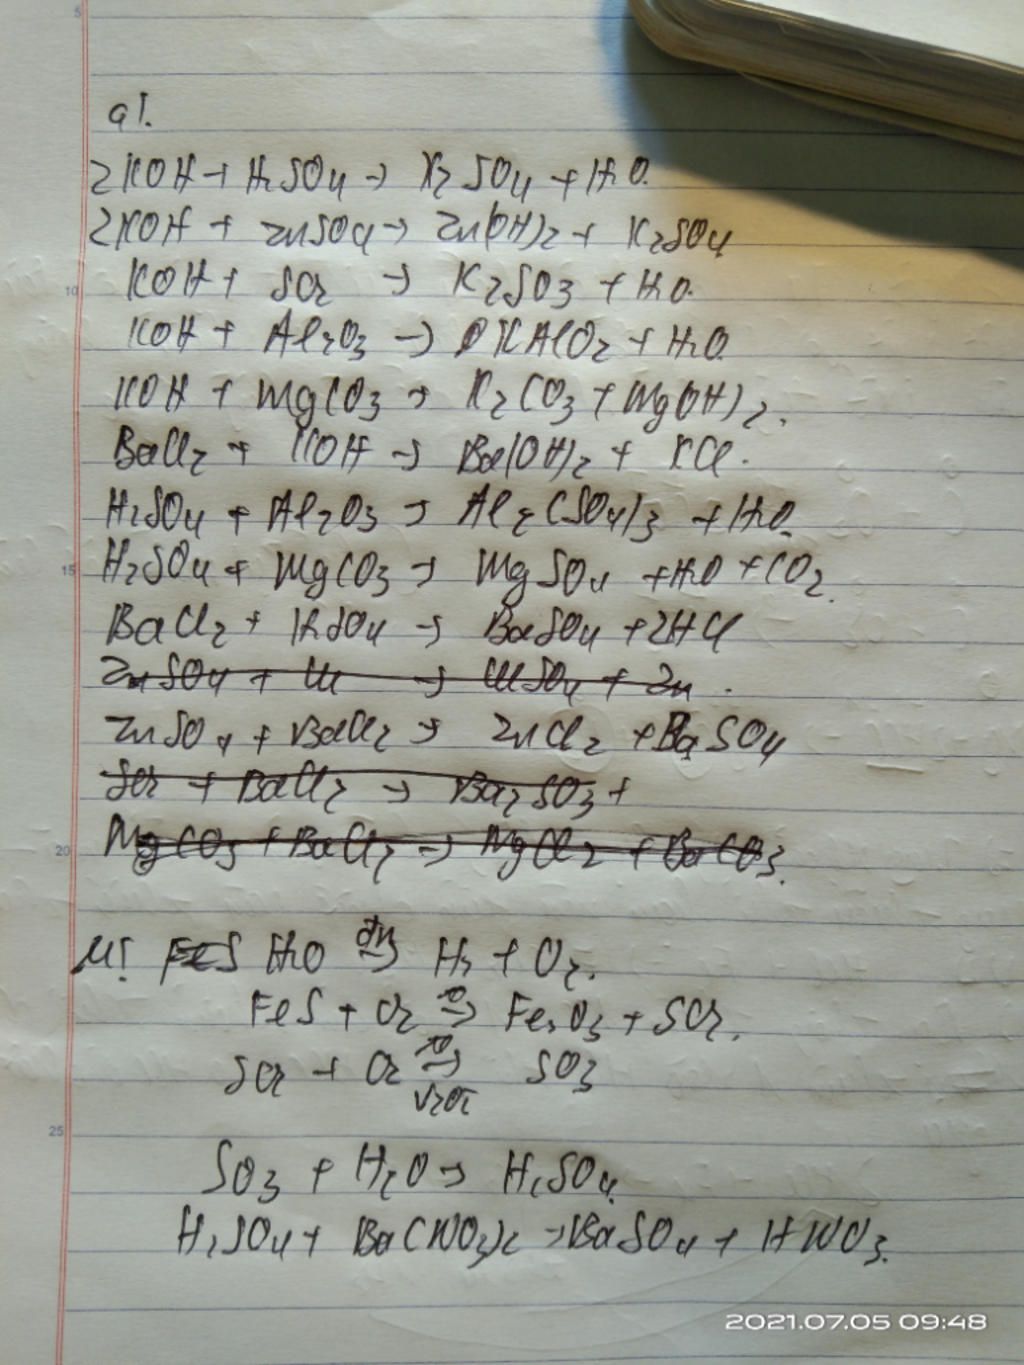 a1.
2KOH + H2SO4 → K2SO4 + H2O.
2KOH + ZnSO4 → Zn(OH)2 + K2SO4
KOH + SO2 → K2SO3 + H2O.
KOH + Al2O3 → KAlO2 + H2O
KOH + MgCO3 → K2CO3 + MgOH)2.
BaCl2 + KOH → Ba(OH)2 + KCl.
H2SO4 + Al2O3 → Al2(SO4)3 + H2O.
H2SO4 + MgCO3 → MgSO4 + H2O + CO2.
BaCl2 + H2SO4 → BaSO4 + 2HCl
ZnSO4 + Cu → CuSO4 + Zn.
ZnSO4 + BaCl2 → ZnCl2 + BaSO4
SO2 + BaCl2 → Ba2SO3 +
MgCO3 + BaCl2 → MgCl2 + BaCO3.
FeS H2O → H2 + O2.
FeS + O2 → Fe2O3 + SO2.
SO2 + O2 → SO3
V2O5
SO3 + H2O → H2SO4.
H2SO4 + Ba(NO3)2 → BaSO4 + HNO3.
5
10
15
20
25
2021.07.05 09:48